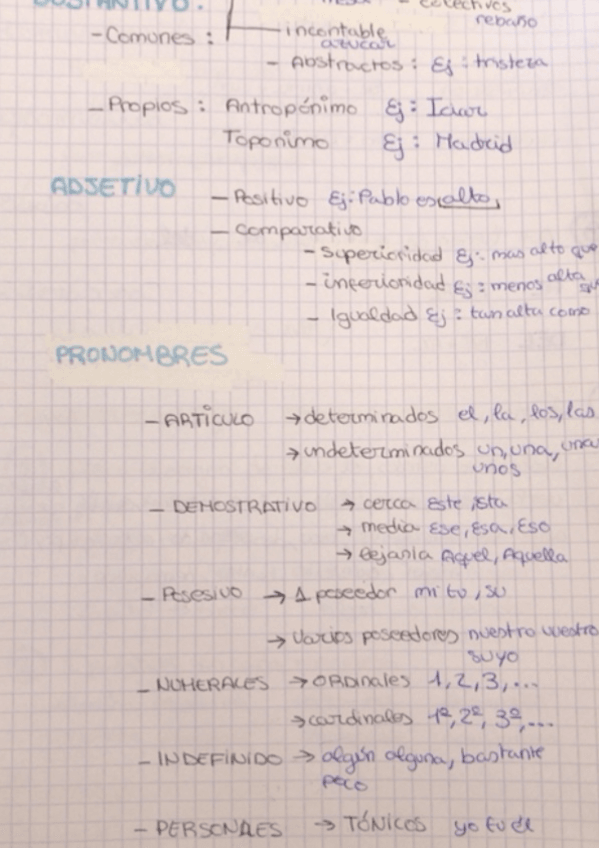 SUSTANTIVO:
colectivos
rebaño
-Comunes :
incontable
azucar
- Abstractos : Ej : tristeza
- Propios : Antropónimo Ej : Icíar
Toponimo Ej : Madrid
ADJETIVO
- Positivo Ej: Pablo es alto,
- comparativo
- superioridad Ej: mas alto que
- inferioridad Ej : menos alta que
- Igualdad Ej : tan alta como
PRONOMBRES
- ARTÍCULO → determinados el, la, los, las
→ undeterminados un, una, una
unos
- DEMOSTRATIVO → cerca Este, ista
→ media Ese, Esa, Eso
→ Lejanía Aquel, Aquella
- Posesivo → 1 poseedor mi tu, su
→ Varios poseedores nuestro vuestro
suyo
- NUMERALES → ORDinales 1, 2, 3, ...
→ cardinales 1º, 2º, 3º, ...
- INDEFINIDO → algún alguna, bastante
poco
- PERSONALES → TÓNICOS yo tu el